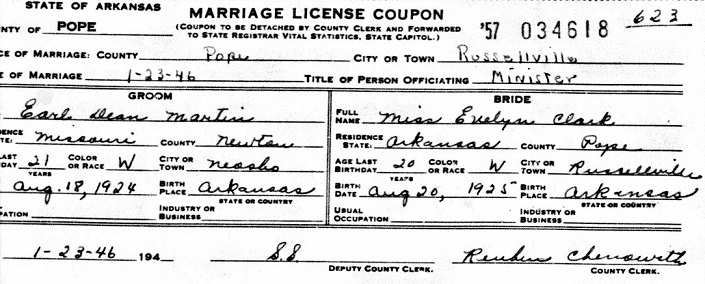 STATE OF ARKANSAS
MARRIAGE LICENSE COUPON
623
NTY OF POPE
(COUPON TO BE DETACHED BY COUNTY CLERK AND FORWARDED
TO STATE REGISTRAR VITAL STATISTICS, STATE CAPITOL.)
'57 034618
CE OF MARRIAGE: COUNTY Pope CITY OR TOWN Russellville
E OF MARRIAGE 1-23-46 TITLE OF PERSON OFFICIATING Minister
GROOM
Earl Dean Martin
IDENCE
TE: Missouri COUNTY Newton
LAST
HDAY 21 YEARS COLOR OR RACE W CITY OR TOWN Neosho
Aug. 18, 1924 BIRTH PLACE Arkansas
STATE OR COUNTRY
PATION INDUSTRY OR BUSINESS
BRIDE
FULL NAME Miss Evelyn Clark
RESIDENCE STATE: Arkansas COUNTY Pope
AGE LAST BIRTHDAY 20 YEARS COLOR OR RACE W CITY OR TOWN Russellville
BIRTH DATE Aug 20, 1925 BIRTH PLACE Arkansas
STATE OR COUNTRY
USUAL OCCUPATION INDUSTRY OR BUSINESS
1-23-46 194 S.S. Reuben Chenowith
DEPUTY COUNTY CLERK. COUNTY CLERK.